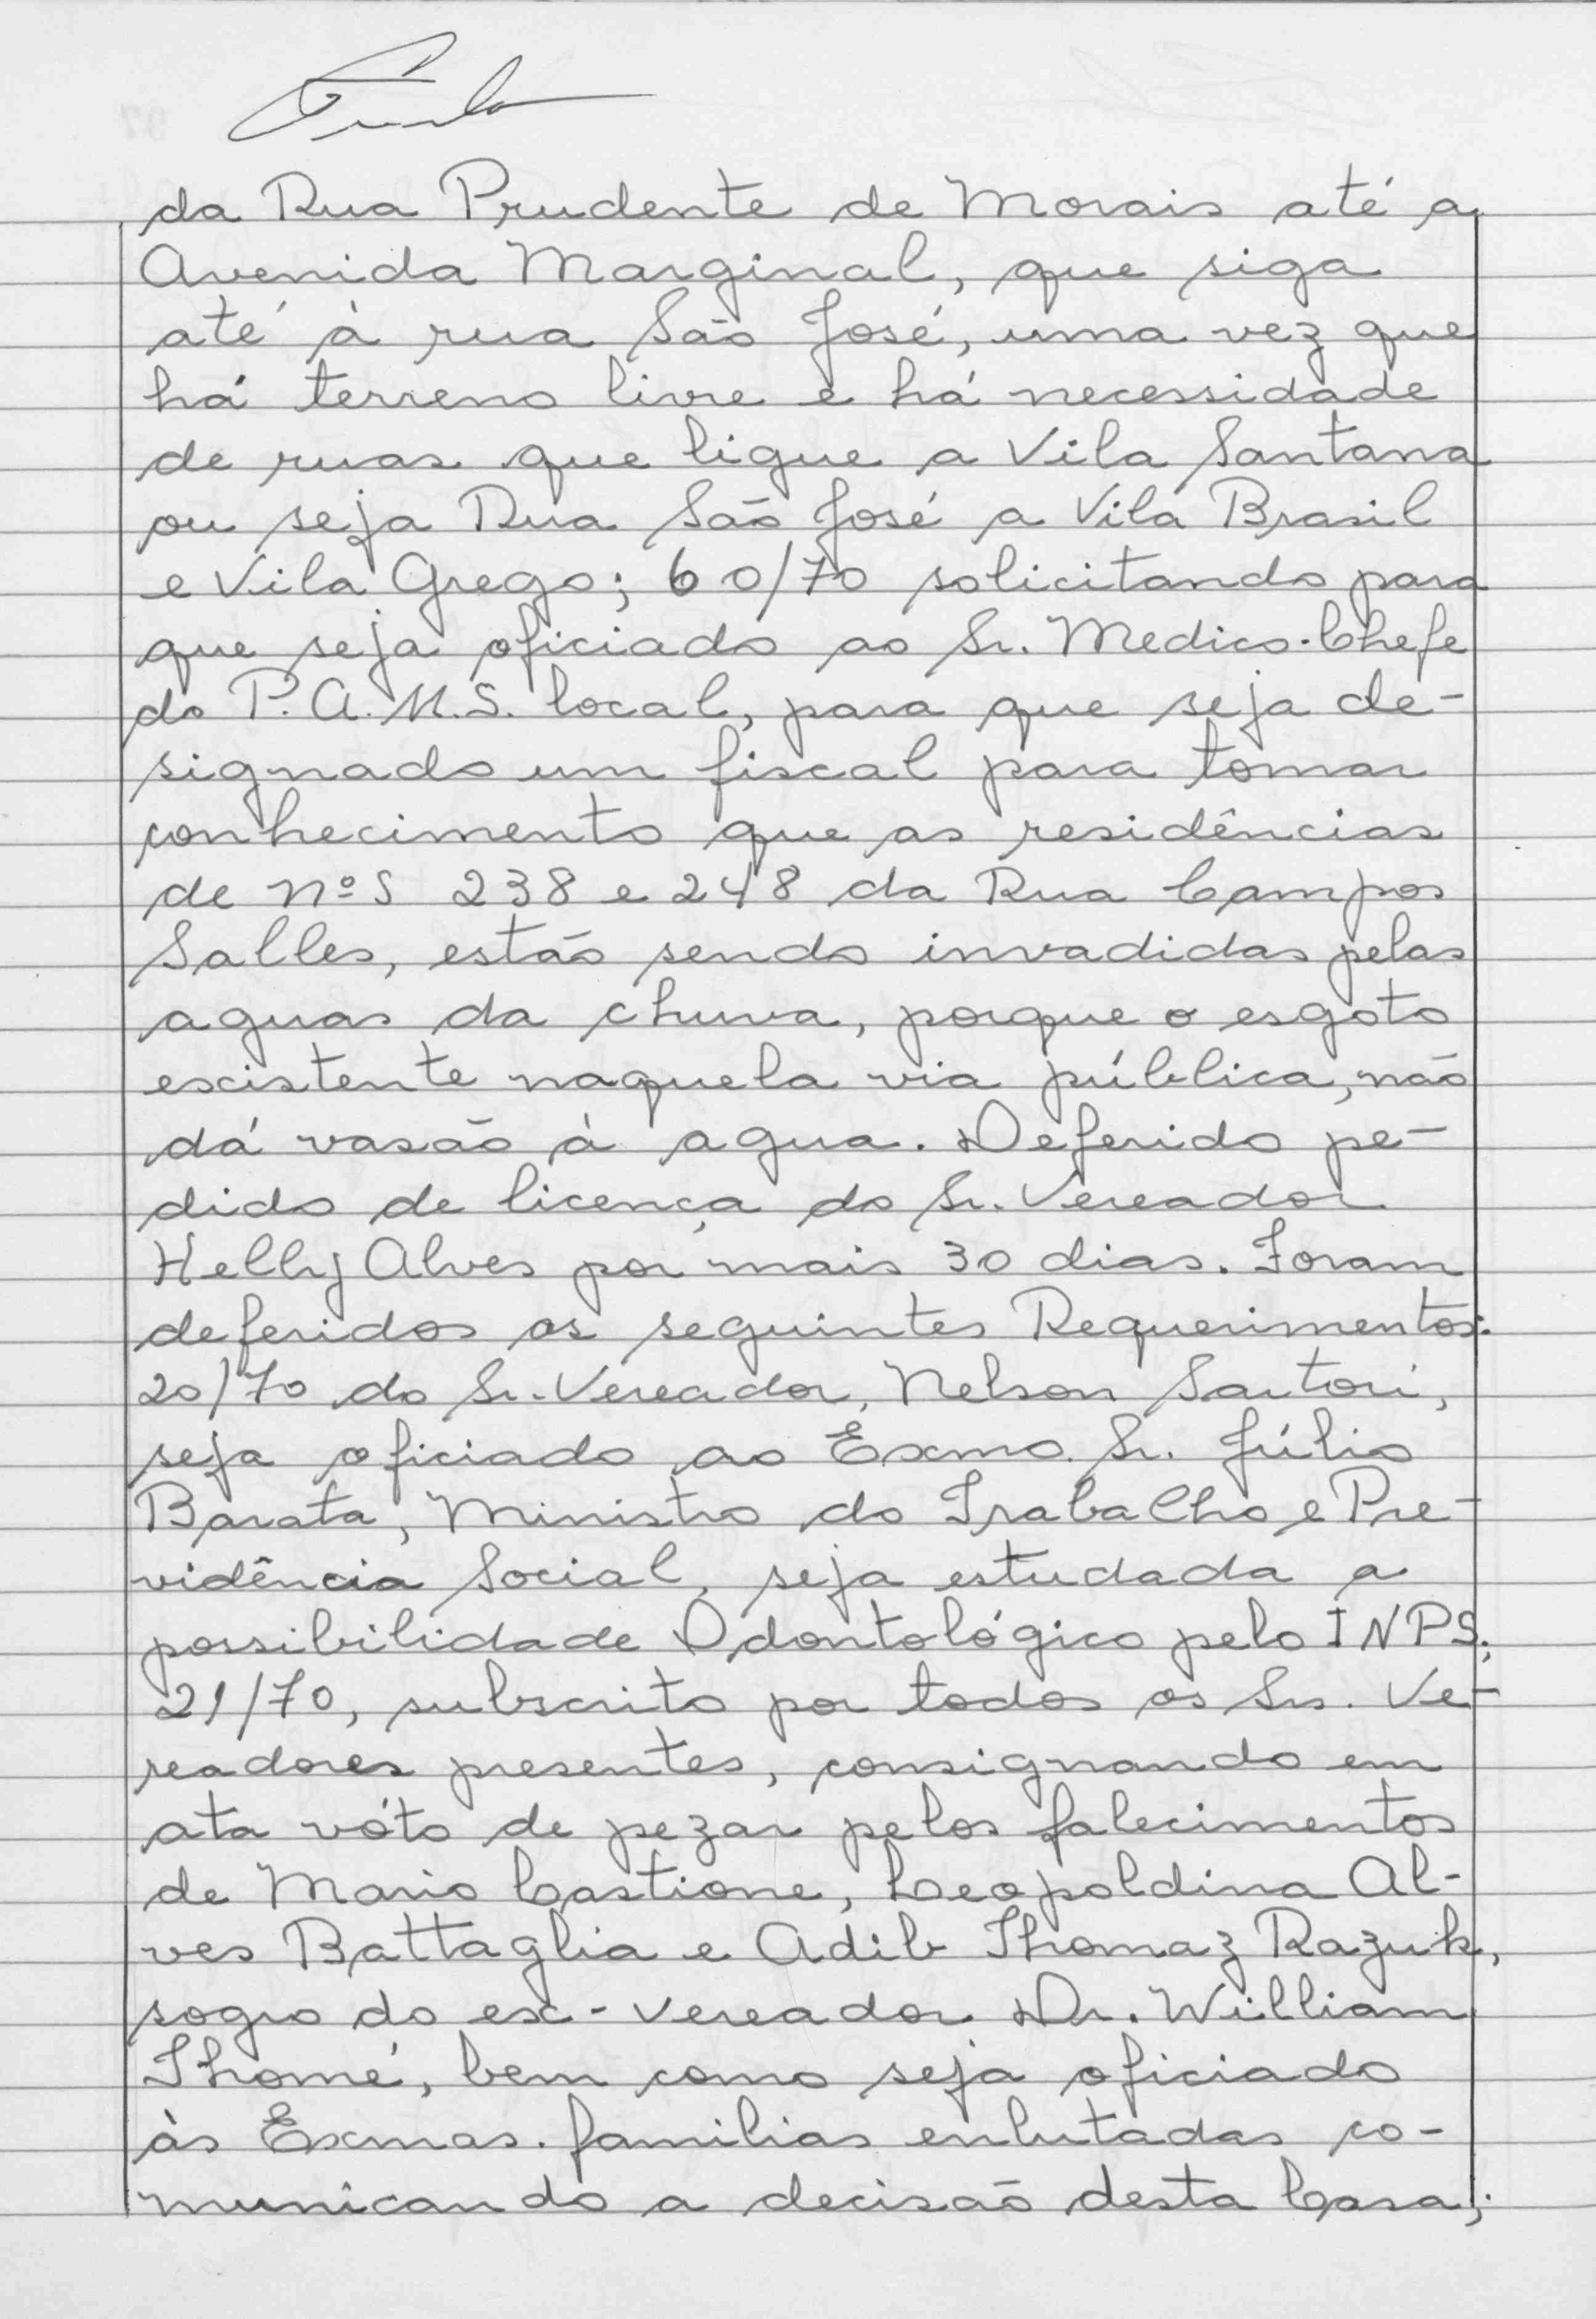 da Rua Prudente de Morais até a
Avenida Marginal, que siga
até à rua São José, uma vez que
há terreno livre e há necessidade
de ruas que ligue a Vila Santana
ou seja Rua São José a Vila Brasil
e Vila Grego; 60/70 solicitando para
que seja oficiado ao Sr. Medico-Chefe
do P.A.M.S. local, para que seja de-
signado um fiscal para tomar
conhecimento que as residências
de nºs 238 e 248 da Rua Campos
Salles, estão sendo invadidas pelas
aguas da chuva, porque o esgoto
existente naquela via pública, não
dá vasão à agua. Deferido pe-
dido de licença do Sr. Vereador
Helly Alves por mais 30 dias. Foram
deferidos os seguintes Requerimentos:
20/70 do Sr. Vereador, Nelson Sartori,
seja oficiado ao Exmo. Sr. Júlio
Barata, Ministro do Trabalho e Pre-
vidência Social, seja estudada a
possibilidade Odontológico pelo INPS;
21/70, subscrito por todos os Srs. Ve-
readores presentes, consignando em
ata vóto de pezar pelos falecimentos
de Mario Castione, Leopoldina Al-
ves Battaglia e Adib Thomaz Razuk,
sogro do ex-vereador Dr. William
Thomé, bem como seja oficiado
às Exmas. familias enlutadas co-
municando a decisão desta Casa;